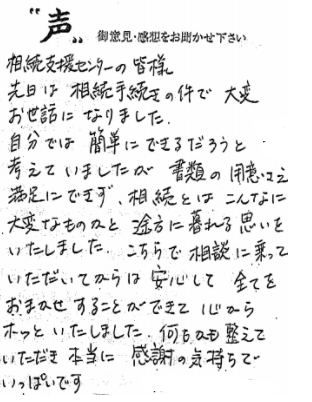 "声" 御意見・感想をお聞かせ下さい
相続支援センターの皆様
先日は 相続手続きの件で 大変
お世話に なりました.
自分では 簡単にできるだろうと
考えて いましたが 書類の 用意さえ
満足にできず、相続とは こんなに
大変なものかと 途方に暮れる思いを
いたしました. こちらで 相談に 乗って
いただいてからは 安心して 全てを
おまかせ することができて 心から
ホッと いたしました. 何もかも 整えて
いただき 本当に 感謝の気持ちで
いっぱいです